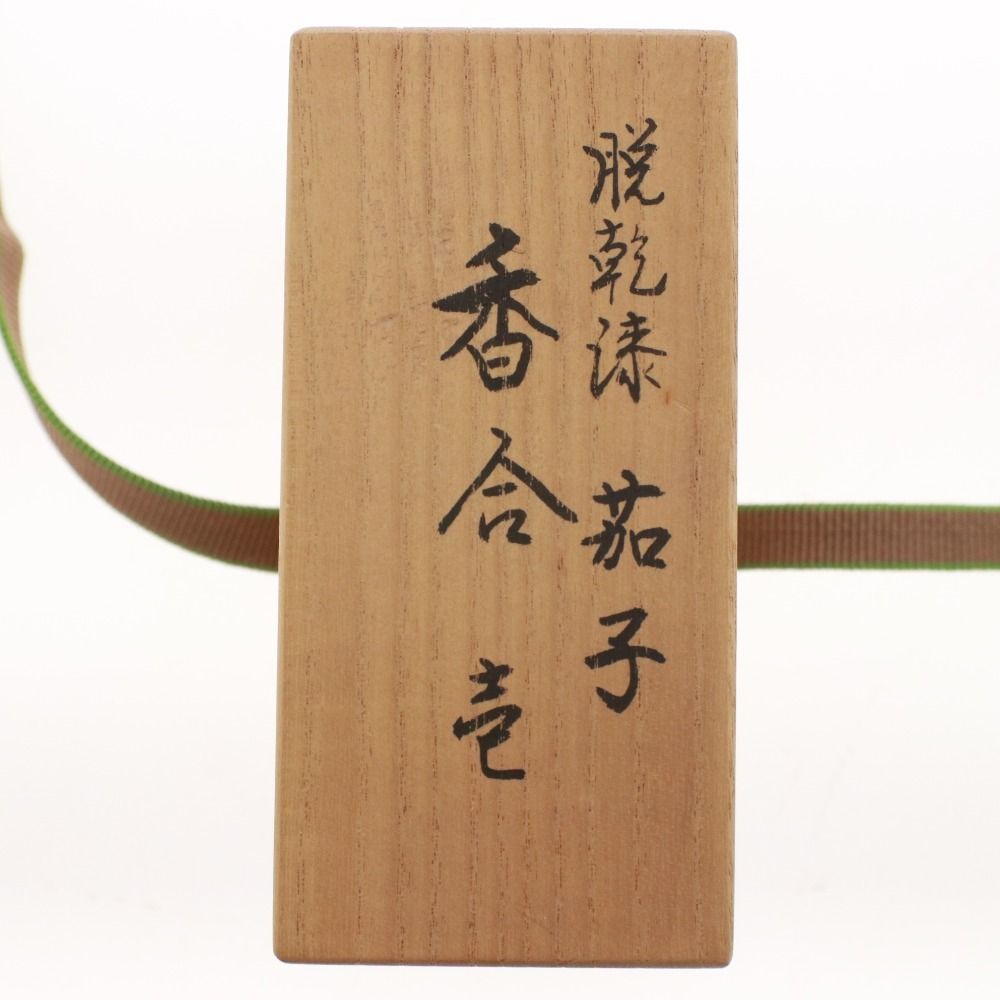 脱乾漆 茄子
香合 壱